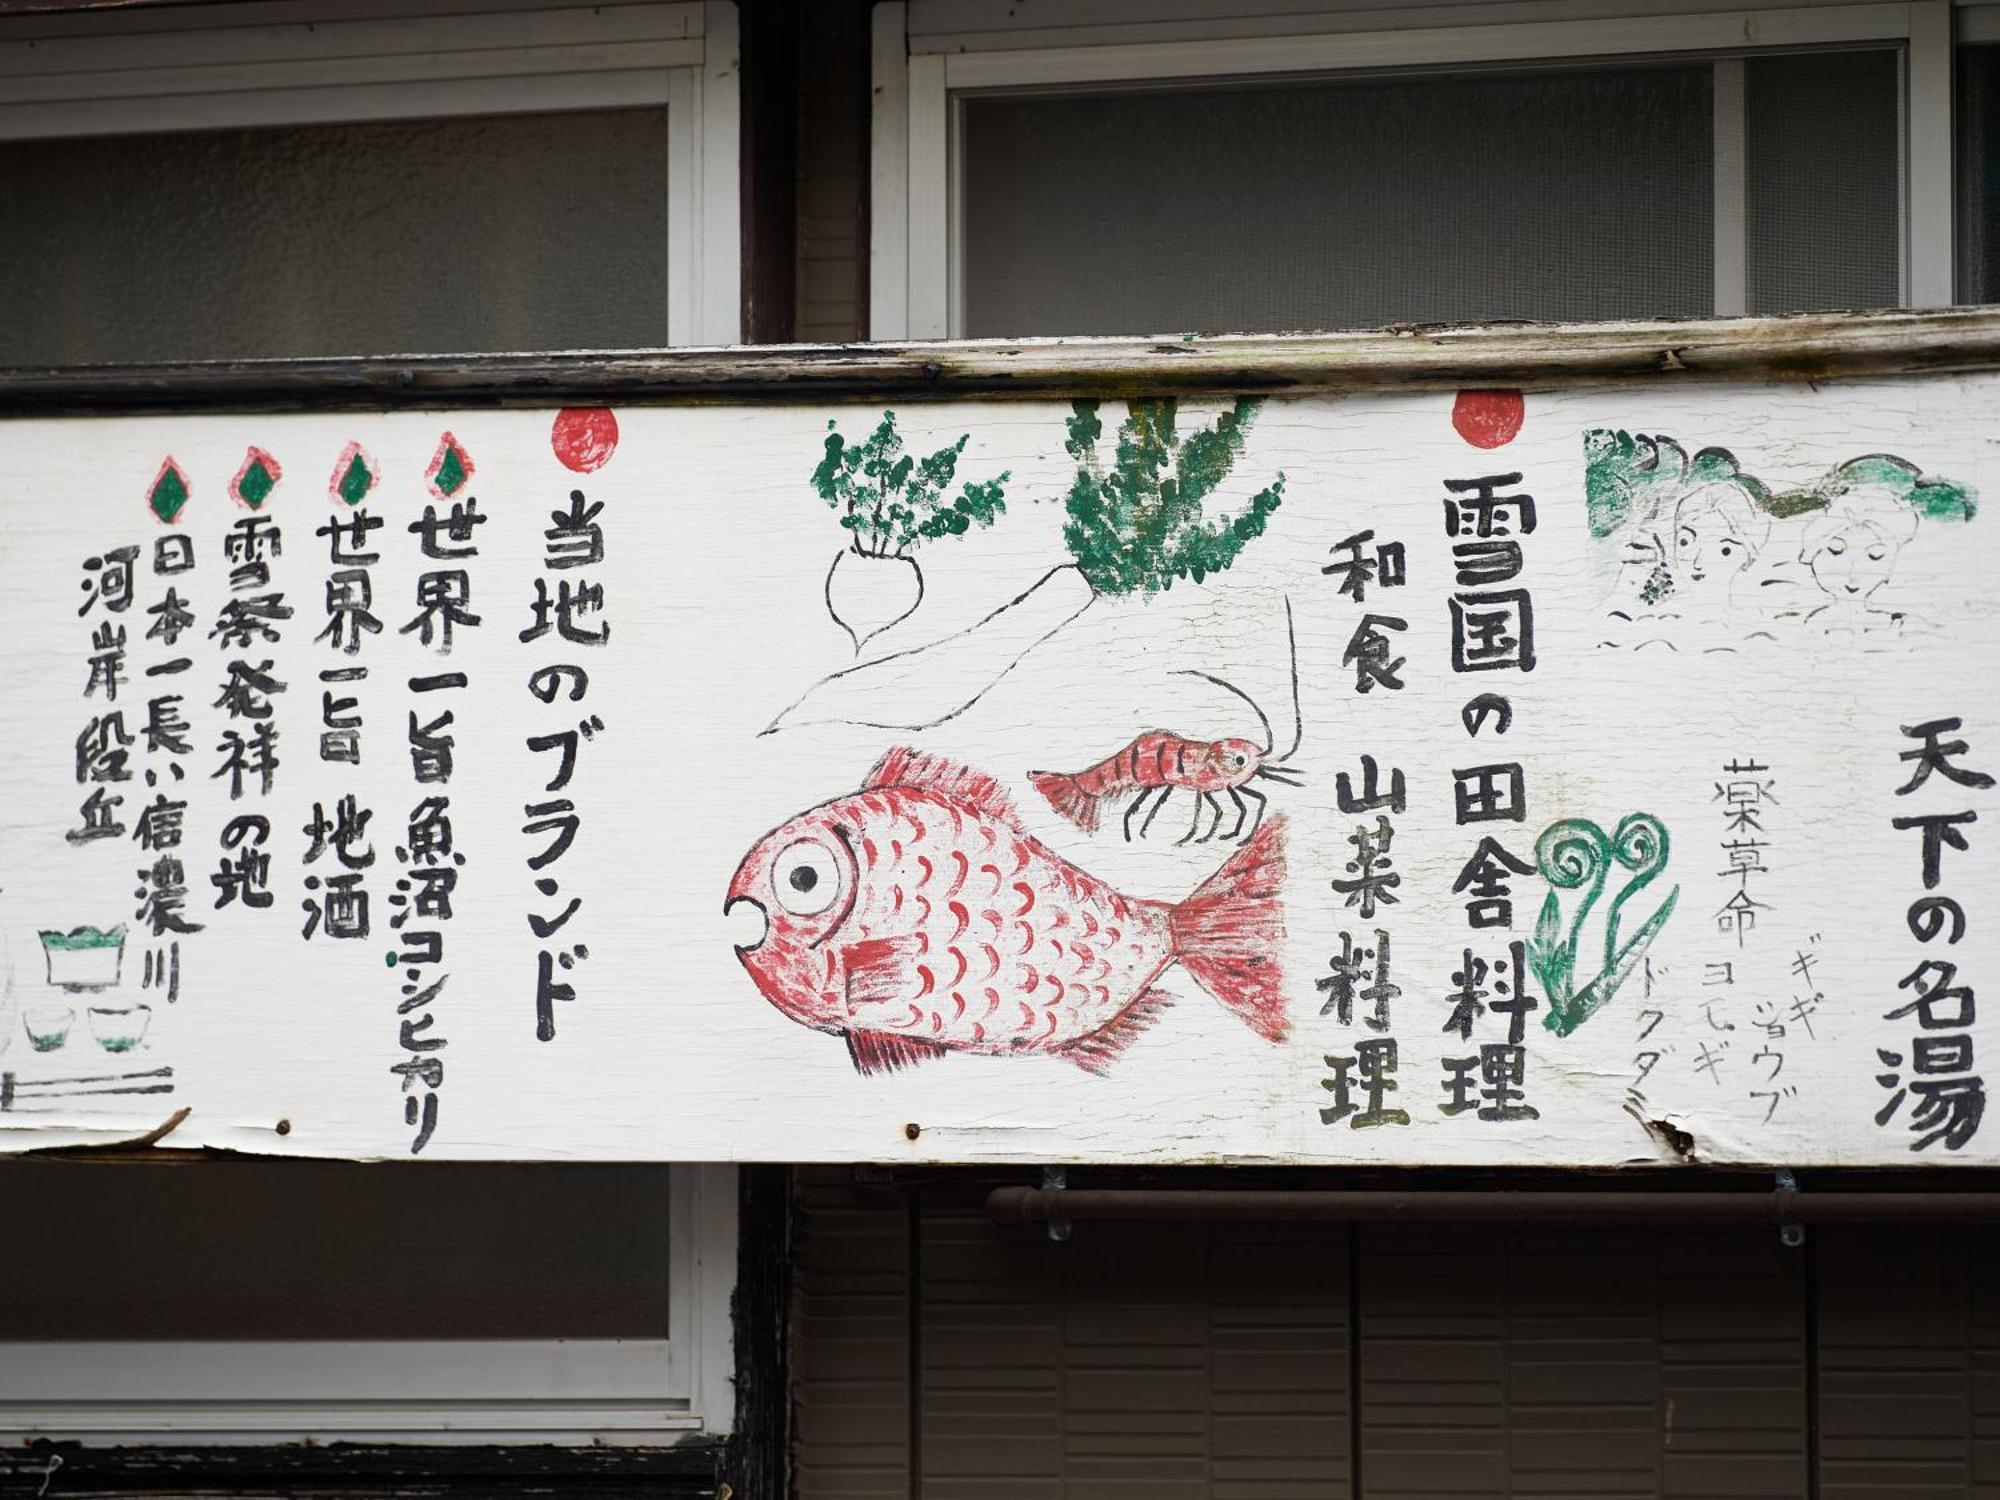 天下の名湯
ギギ
ジョウブ
薬草命
ヨモギ
ドクダミ
雪国の田舎料理
和食 山菜料理
当地のブランド
世界一旨魚沼コシヒカリ
世界一旨 地酒
雪祭発祥の地
日本一長い信濃川
河岸段丘